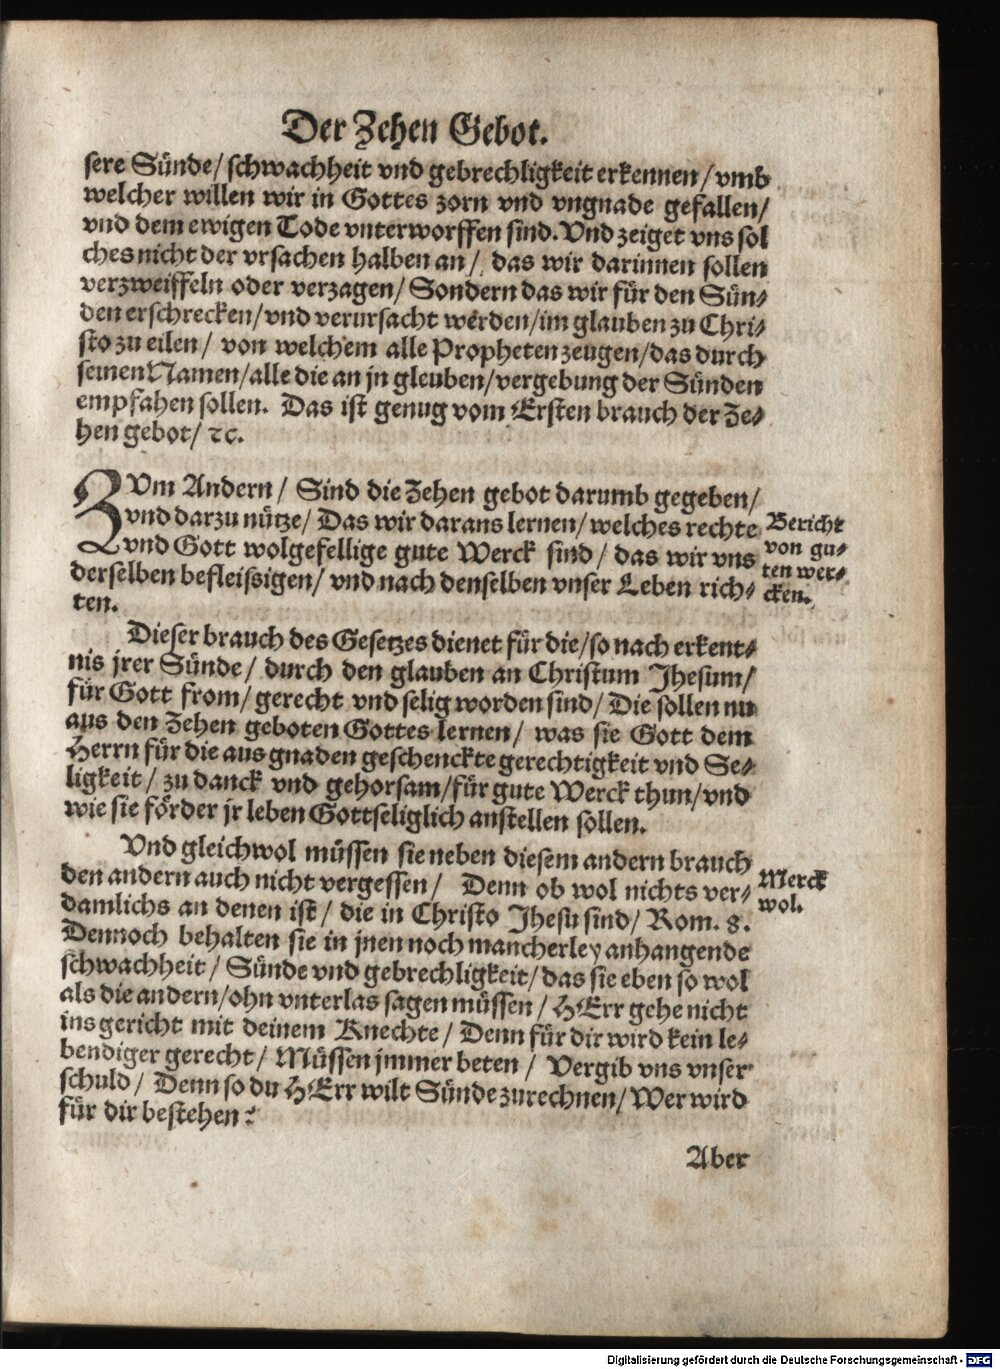 Der Zehen Gebot.
sere Sünde/ schwachheit vnd gebrechligkeit erkennen/ vmb
welcher willen wir in Gottes zorn vnd vngnade gefallen/
vnd dem ewigen Tode vnterworffen sind. Vnd zeiget vns sol
ches nicht der vrsachen halben an/ das wir darinnen sollen
verzweiffeln oder verzagen/ Sondern das wir für den Sün⸗
den erschrecken/ vnd verursacht werden/ im glauben zu Chri⸗
sto zu eilen/ von welchem alle Propheten zeugen/ das durch
seinen Namen/ alle die an jn gleuben/ vergebung der Sünden
empfahen sollen. Das ist genug vom Ersten brauch der Ze⸗
hen gebot/ ꝛc.
ZVm Andern/ Sind die Zehen gebot darumb gegeben/
vnd darzu nütze/ Das wir daraus lernen/ welches rechte
vnd Gott wolgefellige gute Werck sind/ das wir vns
derselben befleissigen/ vnd nach denselben vnser Leben rich⸗
ten.
Bericht
von gu⸗
ten wer⸗
cken.
Dieser brauch des Gesetzes dienet für die/ so nach erkent⸗
nis jrer Sünde/ durch den glauben an Christum Jhesum/
für Gott from/ gerecht vnd selig worden sind/ Die sollen nu
aus den Zehen geboten Gottes lernen/ was sie Gott dem
Herrn für die aus gnaden geschenckte gerechtigkeit vnd Se⸗
ligkeit/ zu danck vnd gehorsam/ für gute Werck thun/ vnd
wie sie förder jr leben Gottseliglich anstellen sollen.
Vnd gleichwol müssen sie neben diesem andern brauch
den andern auch nicht vergessen/ Denn ob wol nichts ver⸗
damlichs an denen ist/ die in Christo Jhesu sind/ Rom. 8.
Dennoch behalten sie in jnen noch mancherley anhangende
schwachheit/ Sünde vnd gebrechligkeit/ das sie eben so wol
als die andern/ ohn vnterlas sagen müssen/ HErr gehe nicht
ins gericht mit deinem Knechte/ Denn für dir wird kein le⸗
bendiger gerecht/ Müssen jmmer beten/ Vergib vns vnser
schuld/ Denn so du HErr wilt Sünde zurechnen/ Wer wird
für dir bestehen?
Merck
wol.
Aber
Digitalisierung gefördert durch die Deutsche Forschungsgemeinschaft - DFG